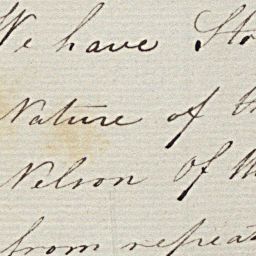 We have Sto
Nature of th
Nelson Of M
from repeat